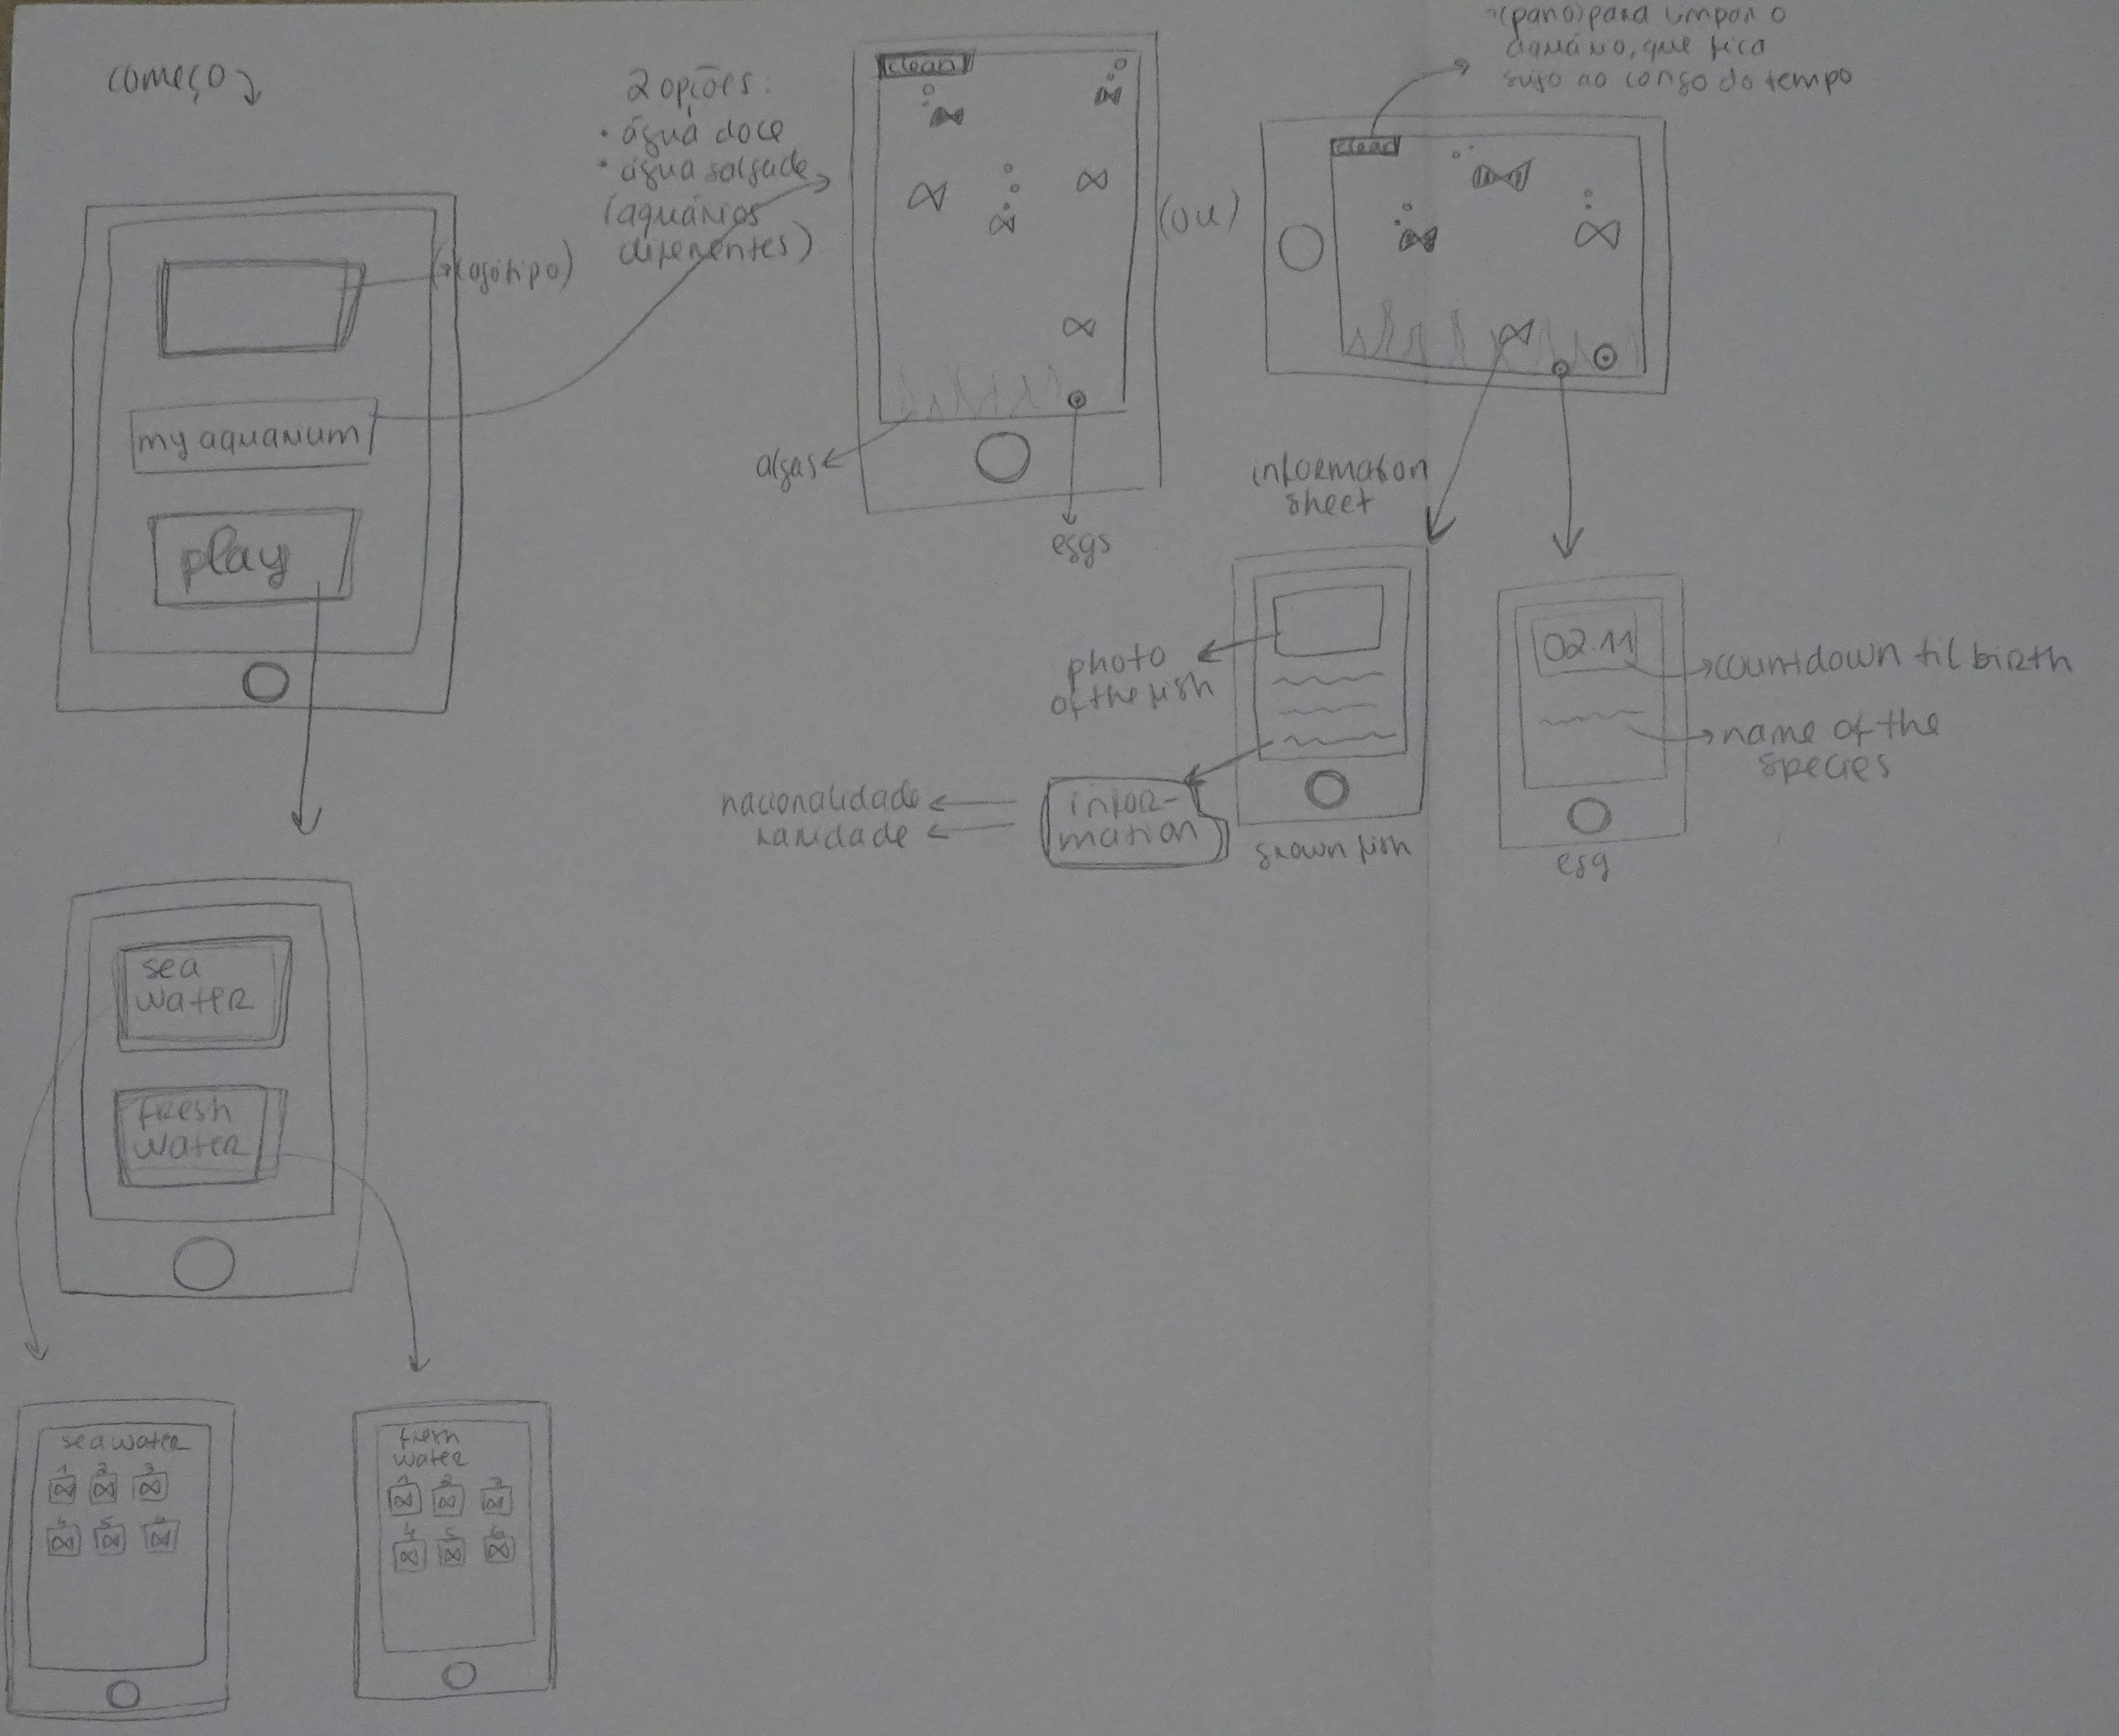 começo
(logótipo)
my aquarium
play
2 opções:
• água doce
• água salgada
(aquários
diferentes)
clean
algas
eggs
(ou)
(pano) para limpar o
aquário, que fica
sujo ao longo do tempo
clean
information
sheet
photo
of the fish
infor-
mation
nacionalidade
raridade
grown fish
02.11
countdown til birth
name of the
species
egg
sea
water
fresh
water
sea water
1 2 3
4 5 6
fresh
water
1 2 3
4 5 6